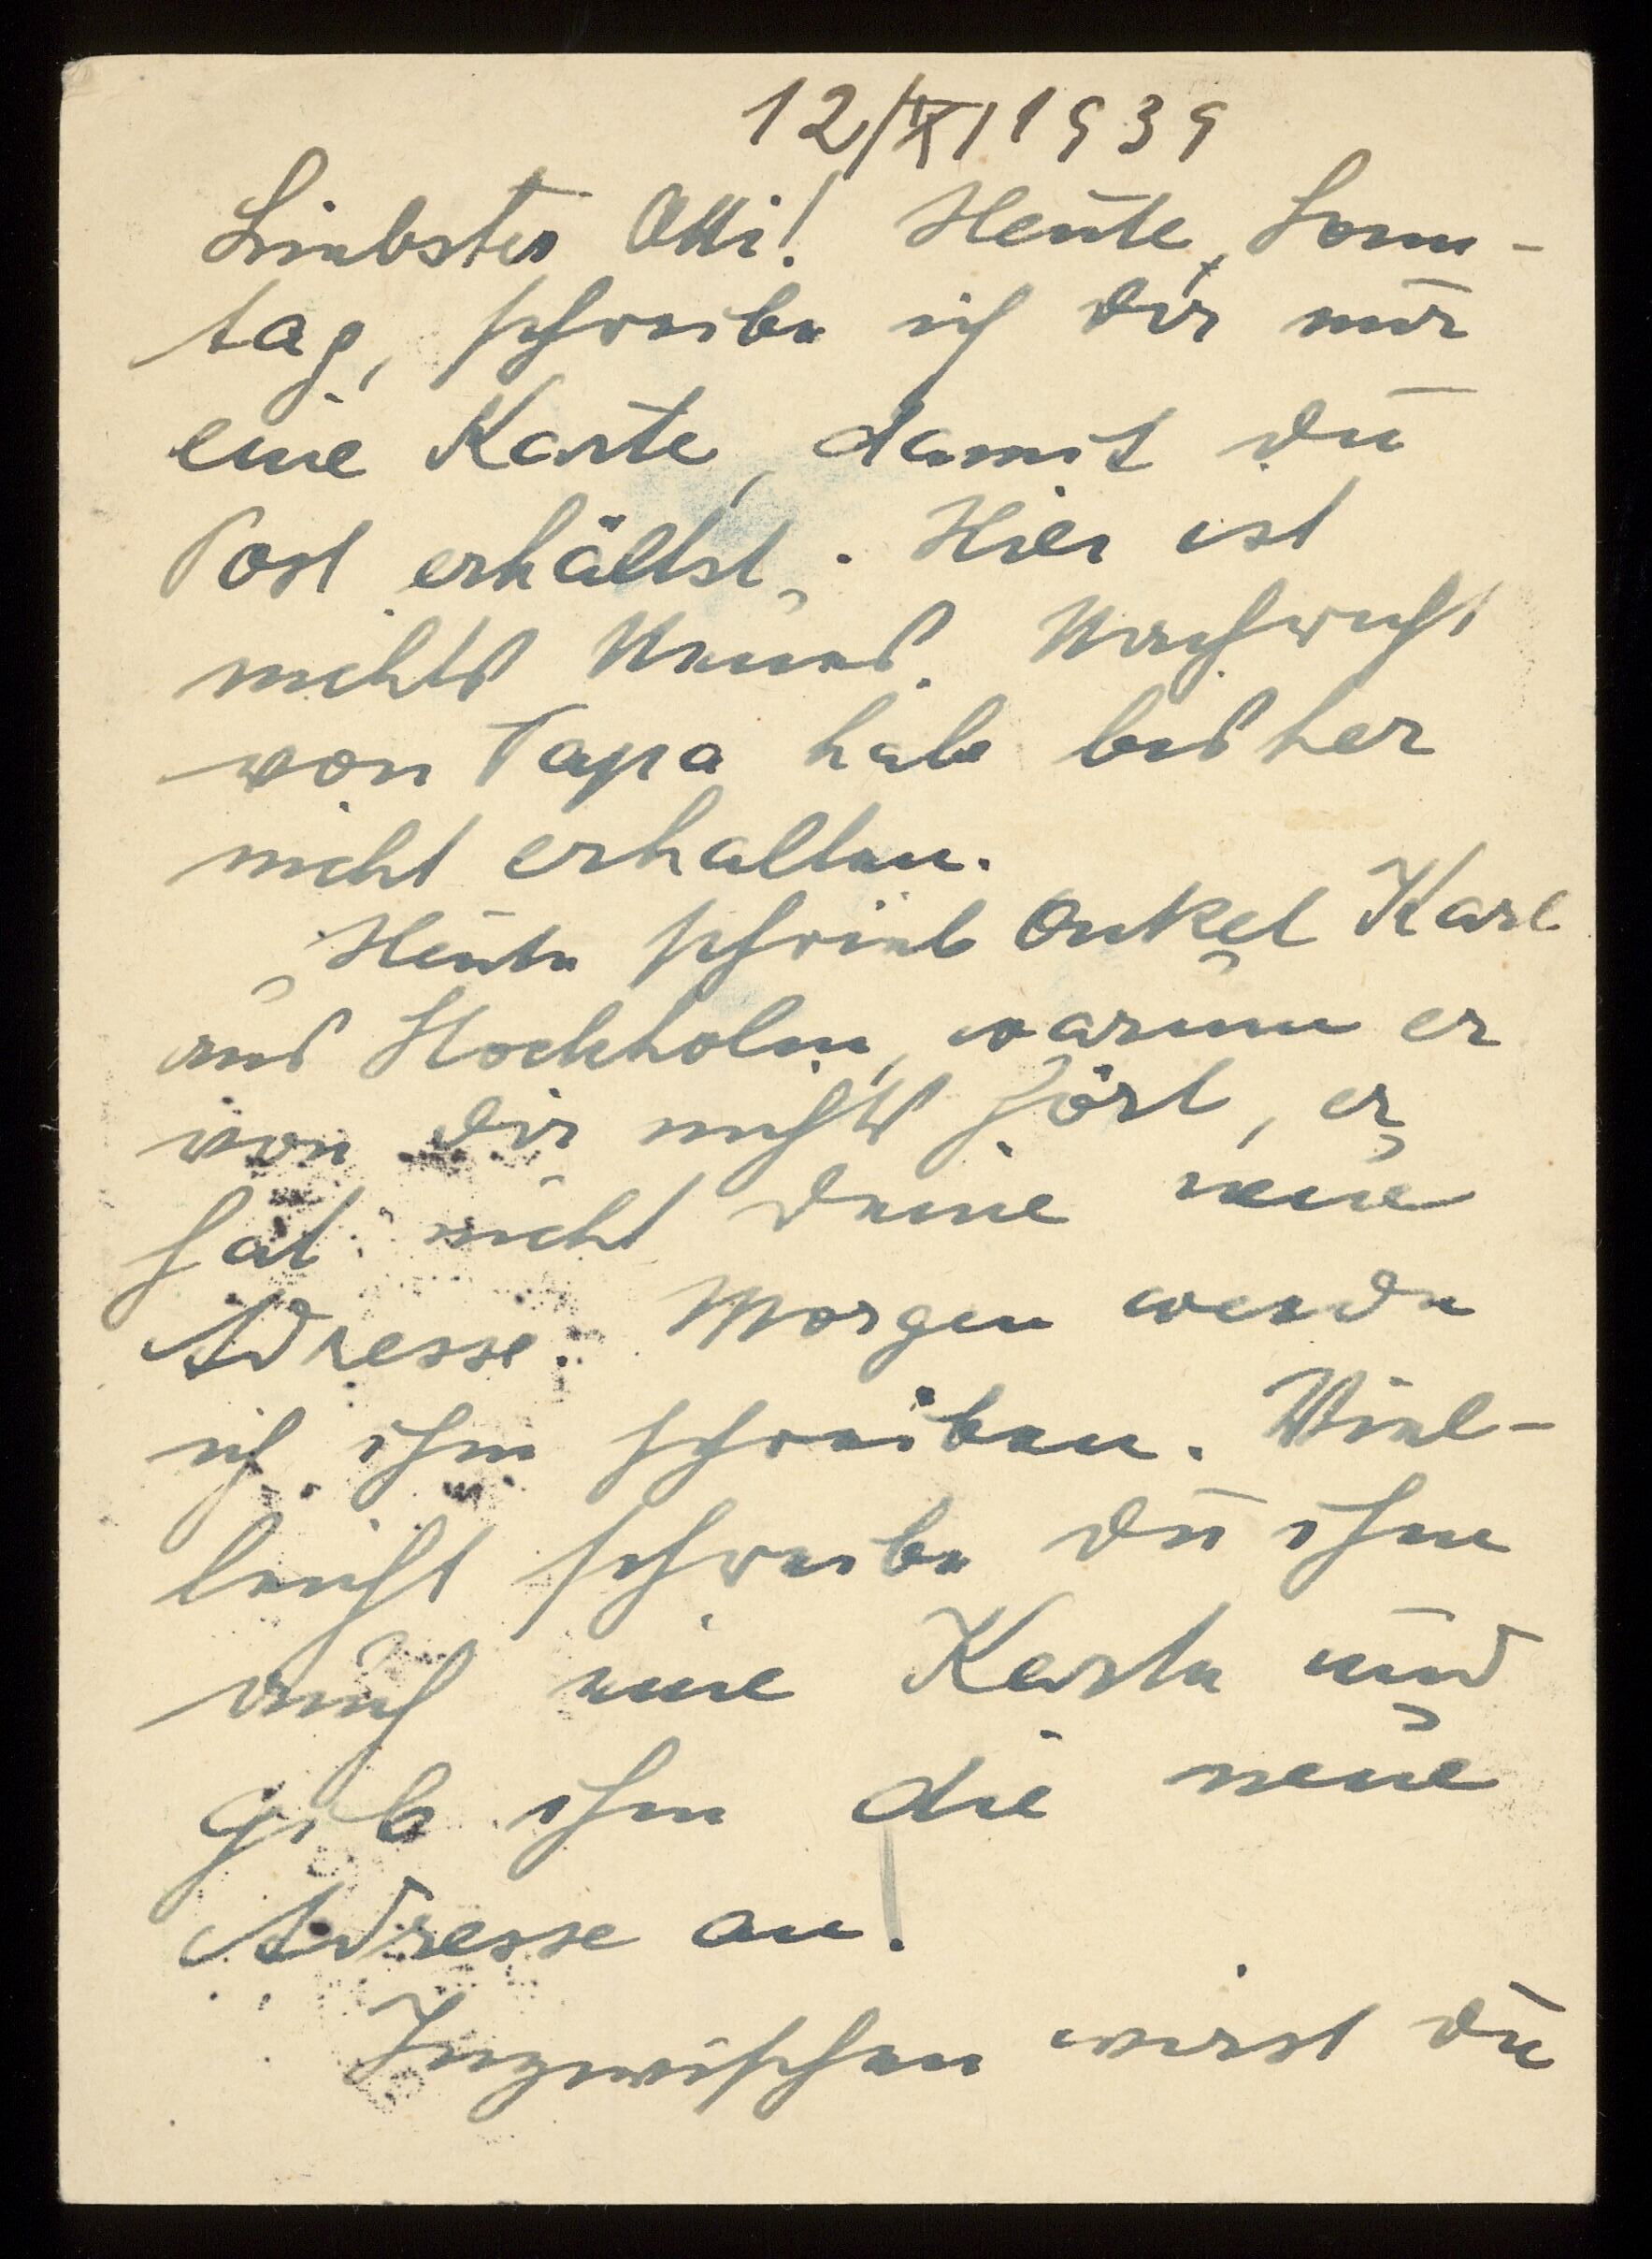 12/XI 1939
Liebster Otti! Heute, Sonn-
tag, schreibe ich dir nur
eine Karte, damit du
Post erhältst. Hier ist
nichts Neues. Nachricht
von Papa habe bisher
nicht erhalten.
Heute schrieb Onkel Karl
aus Stockholm, warum er
von dir nichts hört, er
hat nicht deine neue
Adresse. Morgen werde
ich ihm schreiben. Viel-
leicht schreibe du ihm
auch eine Karte und
gib ihm die neue
Adresse an!
Inzwischen wirst du